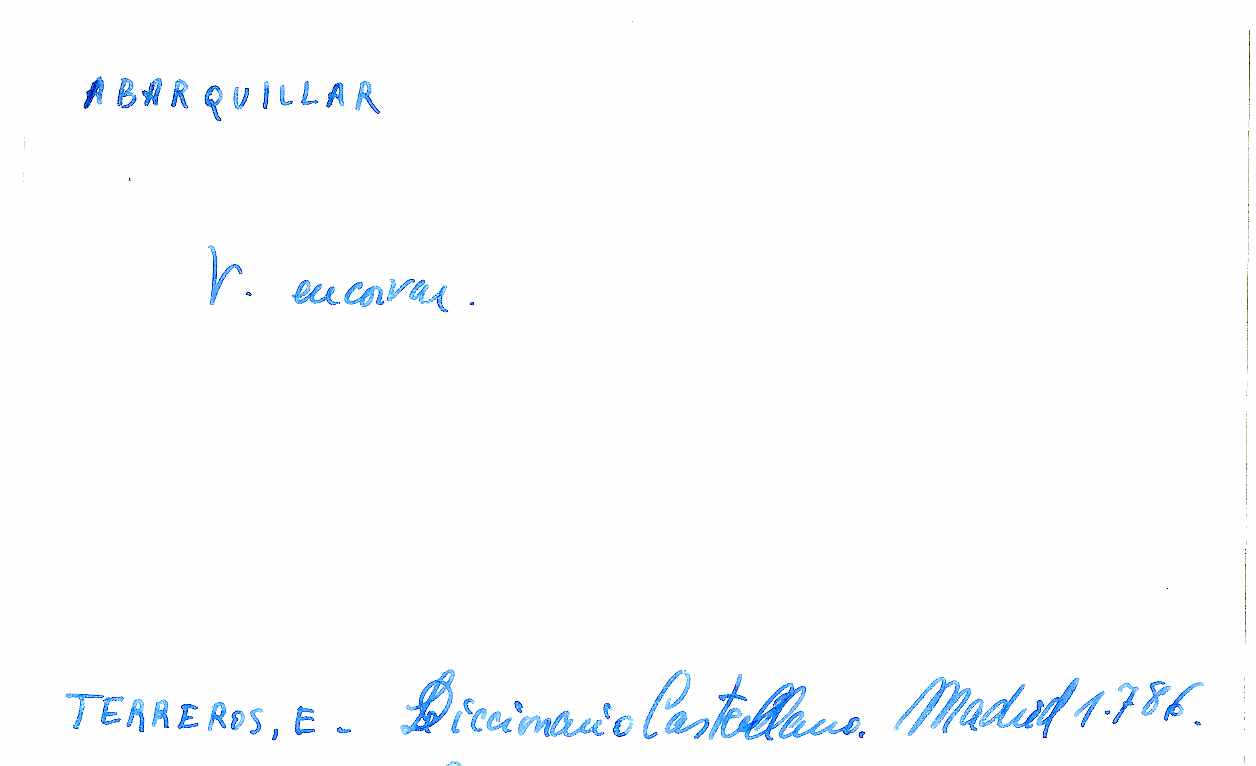 ABARQUILLAR
V. encorvar.
TERREROS, E - Diccionario Castellano. Madrid 1.786.